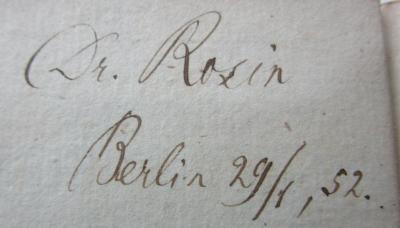 Dr. Rosin
Berlin 29/1, 52.